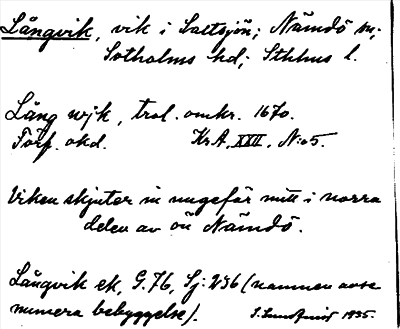 Långvik, vik i Saltsjön; Nämdö sn;
Sotholms hd; Sthlms l.
Lång wjk, trol. omkr. 1670.
Förf. okd. KrA, XXII, N:o 5.
Viken skjuter in ungefär mitt i norra
delen av ön Nämdö.
Långvik ek, G. 76, Sj: 236 (namnen avse
numera bebyggelse). 1935.